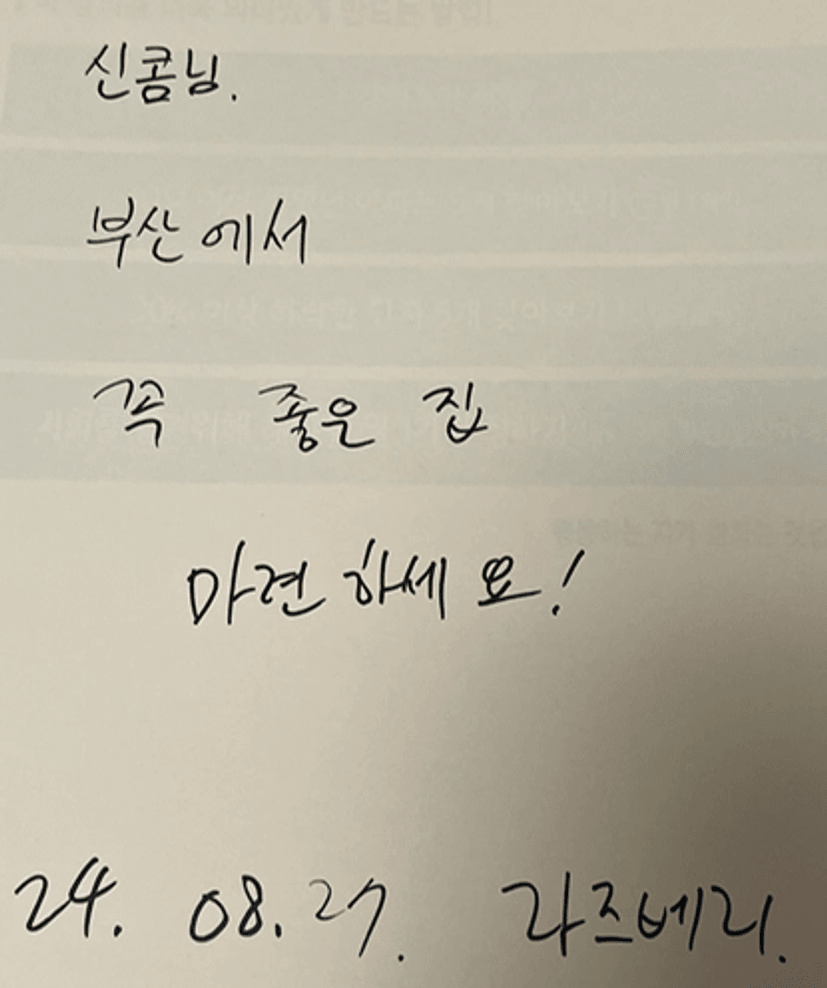 신콤님.
부산에서
꼭 좋은 집
마련하세요!
24. 08. 27. 라즈베리.